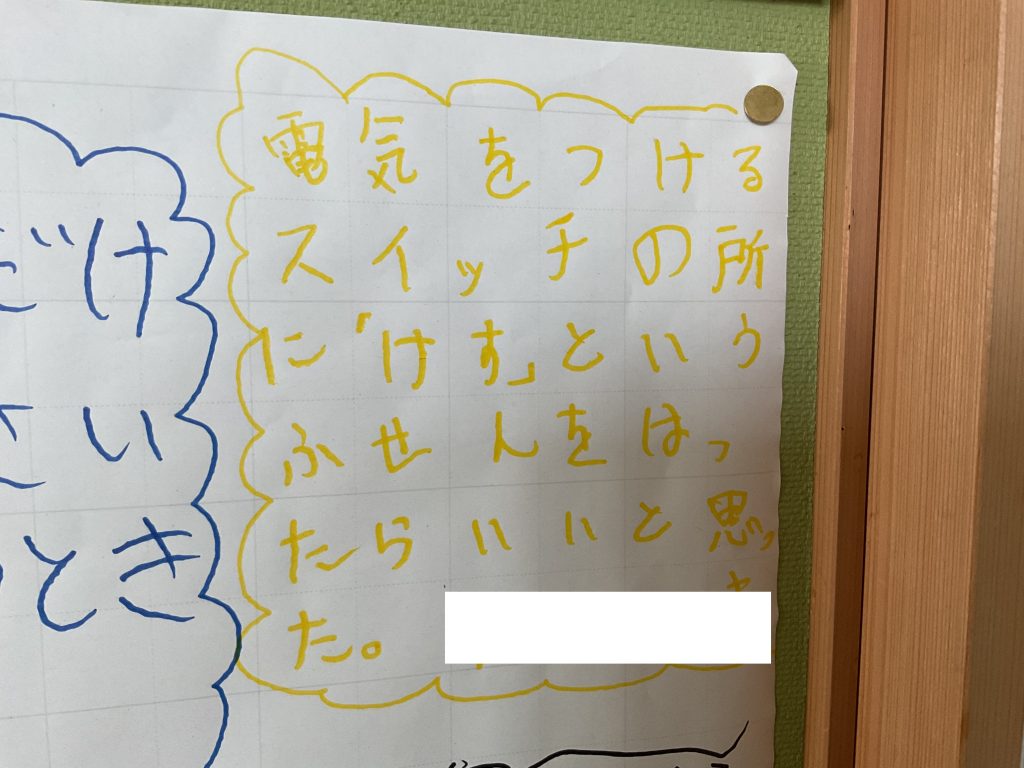 電気をつける
スイッチの所
に「けす」という
ふせんをはっ
たらいいと思っ
た。
だけ
さい
とき